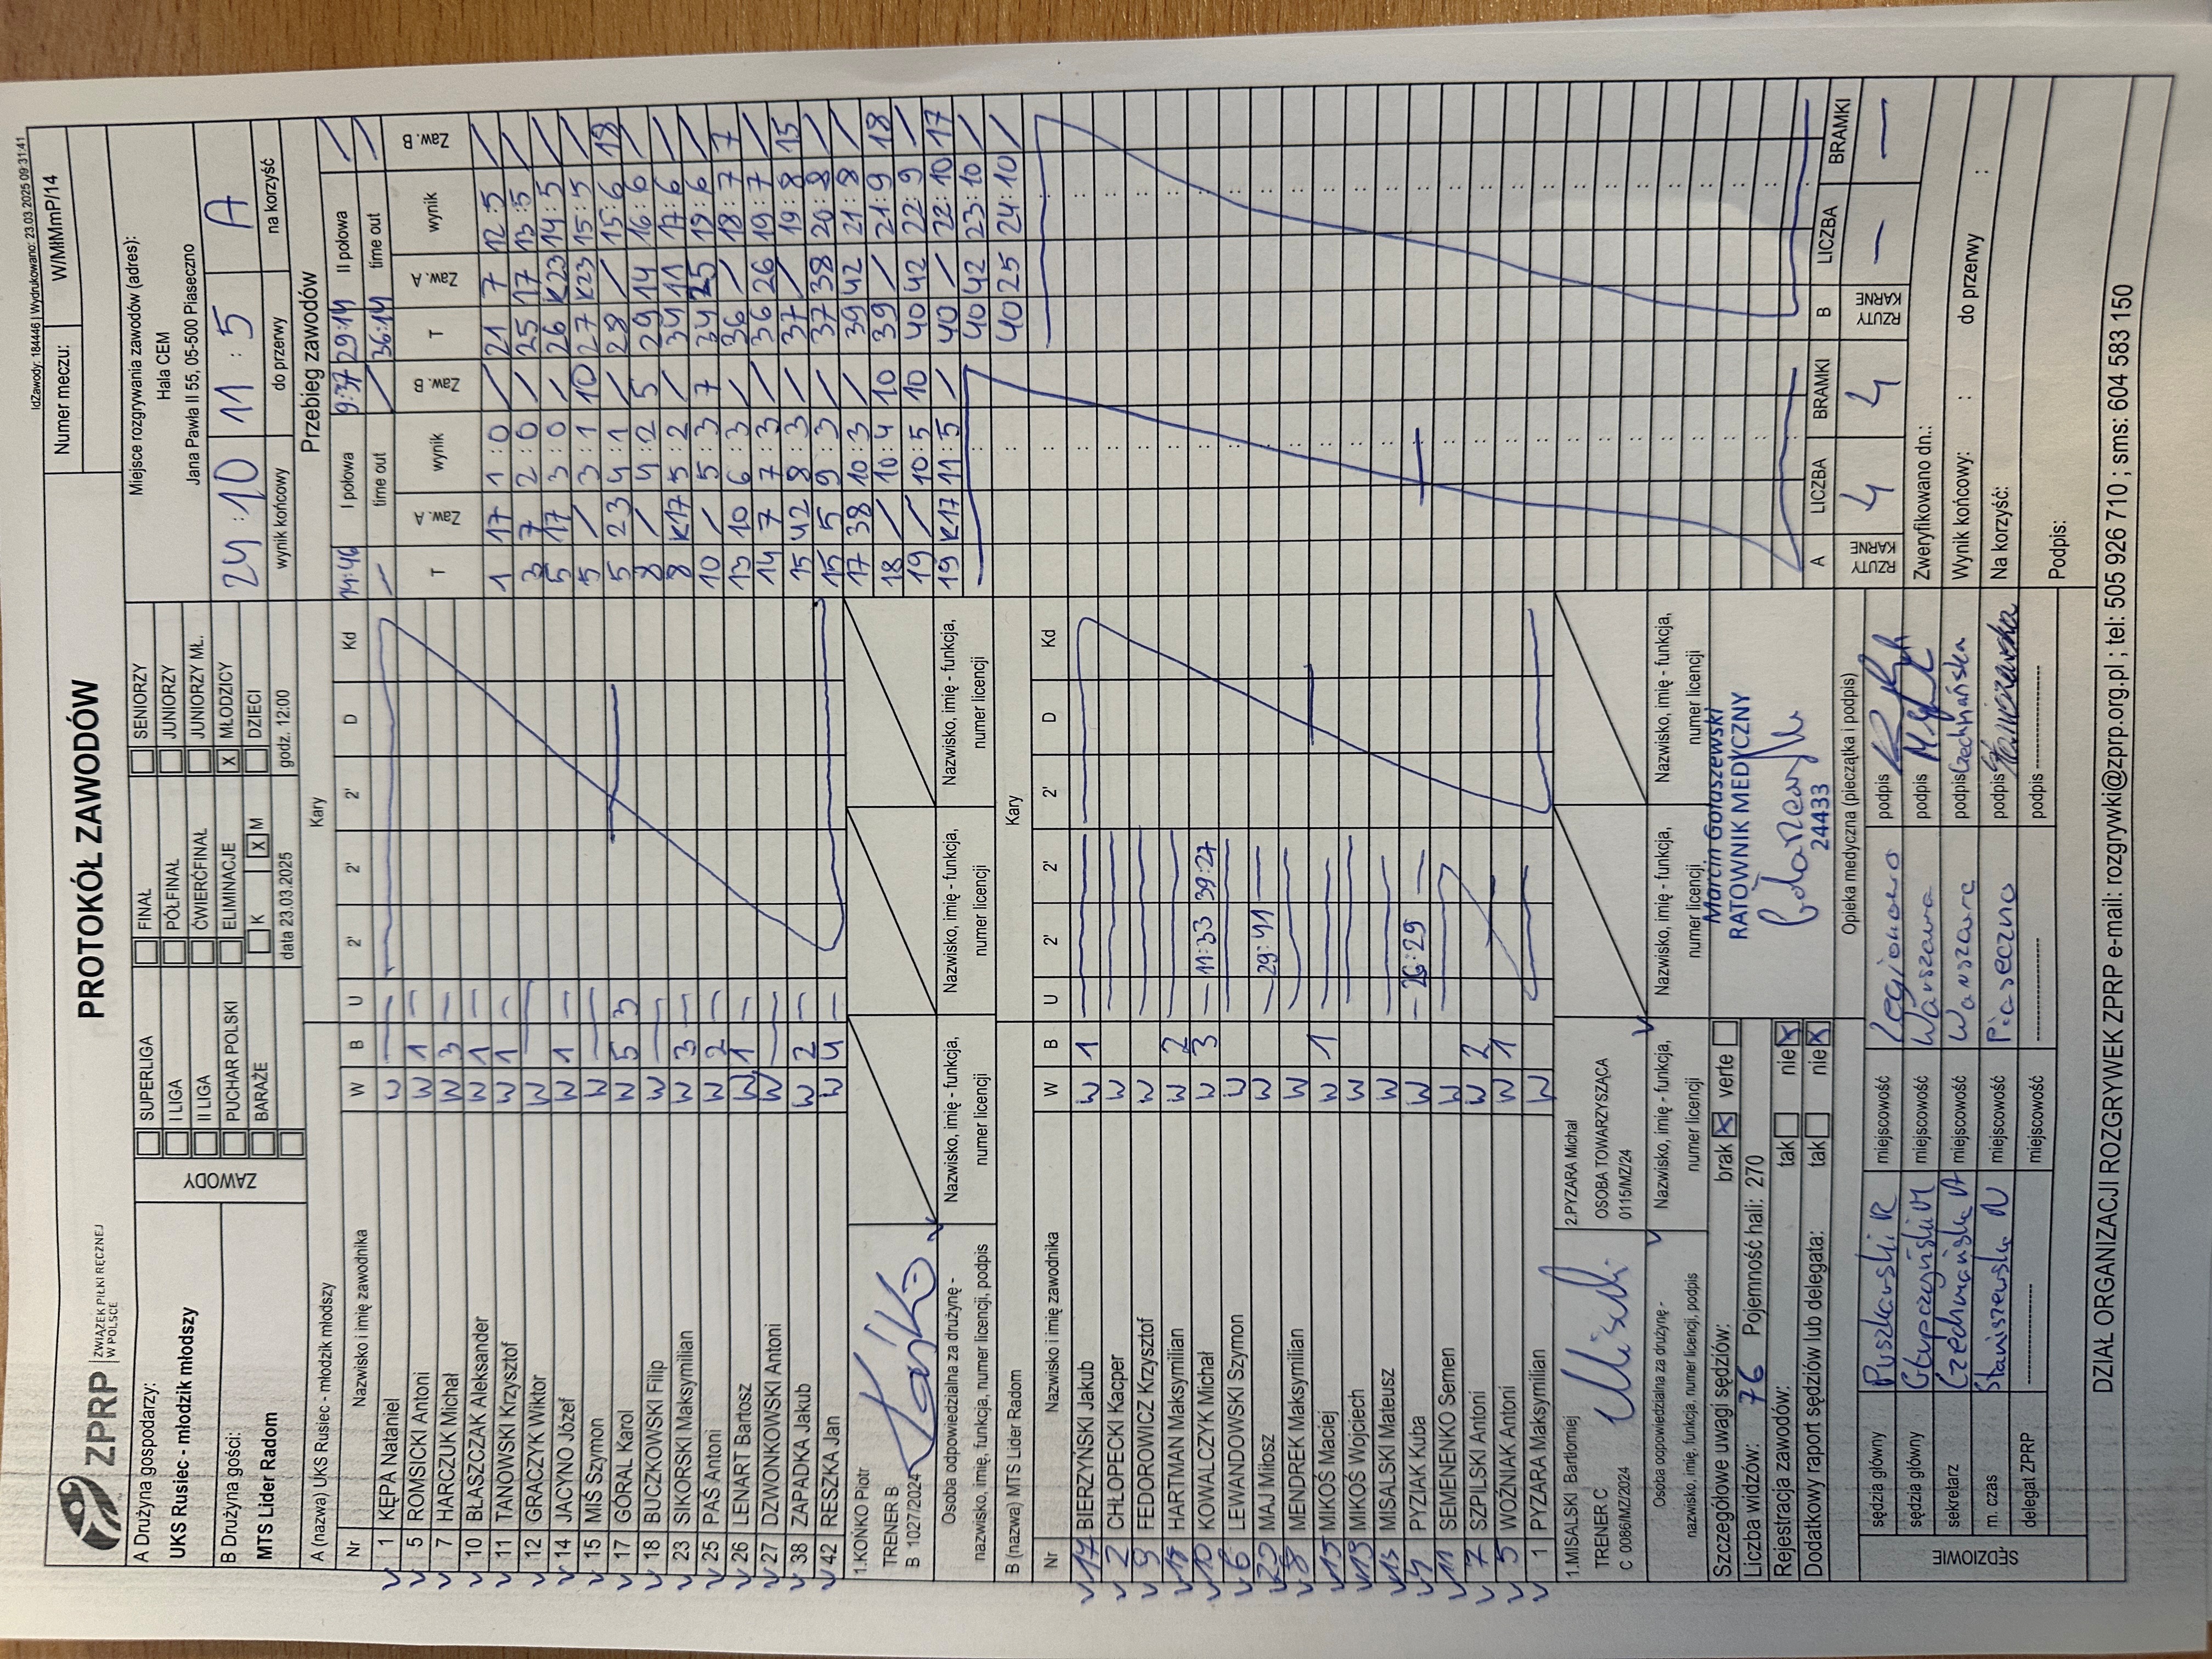 IdZawody: 184446 | Wydrukowano: 23.03.2025 09:31:41
ZPRP ZWIĄZEK PIŁKI RĘCZNEJ W POLSCE
PROTOKÓŁ ZAWODÓW
Numer meczu: W/MłMmP/14
A Drużyna gospodarzy:
UKS Rusiec - młodzik młodszy
B Drużyna gości:
MTS Lider Radom
ZAWODY
SUPERLIGA FINAŁ SENIORZY
I LIGA PÓŁFINAŁ JUNIORZY
II LIGA ĆWIERĆFINAŁ JUNIORZY MŁ.
PUCHAR POLSKI ELIMINACJE X MŁODZICY
BARAŻE K X M DZIECI
data 23.03.2025 godz. 12:00
Miejsce rozgrywania zawodów (adres):
Hala CEM
Jana Pawła II 55, 05-500 Piaseczno
24:10 11:5 A
wynik końcowy do przerwy na korzyść
A (nazwa) UKS Rusiec - młodzik młodszy Kary
Nr Nazwisko i imię zawodnika W B U 2' 2' 2' D Kd
v 1 KĘPA Nataniel W — —
v 5 ROMSICKI Antoni W 1 —
v 7 HARCZUK Michał W 3 —
v 10 BŁASZCZAK Aleksander W 1 —
v 11 TANOWSKI Krzysztof W 1 —
v 12 GRACZYK Wiktor W —
v 14 JACYNO Józef W 1 —
v 15 MIŚ Szymon W —
v 17 GÓRAL Karol W 5 3
v 18 BUCZKOWSKI Filip W —
v 23 SIKORSKI Maksymilian W 3 —
v 25 PAŚ Antoni W 2 —
v 26 LENART Bartosz W 1 —
v 27 DZWONKOWSKI Antoni W —
v 38 ZAPADKA Jakub W 2 —
v 42 RESZKA Jan W 4 —
1.KOŃKO Piotr
TRENER B
B 1027/2024
Osoba odpowiedzialna za drużynę - nazwisko, imię, funkcja, numer licencji, podpis
Nazwisko, imię - funkcja, numer licencji
Nazwisko, imię - funkcja, numer licencji
Nazwisko, imię - funkcja, numer licencji
B (nazwa) MTS Lider Radom Kary
Nr Nazwisko i imię zawodnika W B U 2' 2' 2' D Kd
v 17 BIERZYŃSKI Jakub W 1
v 2 CHŁOPECKI Kacper W
v 9 FEDOROWICZ Krzysztof W
v 18 HARTMAN Maksymilian W 2
v 10 KOWALCZYK Michał W 3 — 11:33 39:27
v 6 LEWANDOWSKI Szymon W
v MAJ Miłosz W — 29:41 —
v 8 MENDREK Maksymilian W
v 15 MIKOŚ Maciej W 1
v MIKOŚ Wojciech W
v MISALSKI Mateusz W
v PYZIAK Kuba W — 26:29 —
v 11 SEMENENKO Semen W
v 7 SZPILSKI Antoni W 2
v 5 WOŹNIAK Antoni W 1
v 1 PYZARA Maksymilian W
1.MISALSKI Bartłomiej
TRENER C
C 0086/MZ/2024
2.PYZARA Michał
OSOBA TOWARZYSZĄCA
0115/MZ/24
Osoba odpowiedzialna za drużynę - nazwisko, imię, funkcja, numer licencji, podpis
Nazwisko, imię - funkcja, numer licencji
Nazwisko, imię - funkcja, numer licencji
Nazwisko, imię - funkcja, numer licencji
Szczegółowe uwagi sędziów: brak X verte
Liczba widzów: 76 Pojemność hali: 270
Rejestracja zawodów: tak nie X
Dodatkowy raport sędziów lub delegata: tak nie X
Marcin Gołaszewski
RATOWNIK MEDYCZNY
24433
Opieka medyczna (pieczątka i podpis)
SĘDZIOWIE
sędzia główny Puszkarski R miejscowość Legionowo podpis
sędzia główny Głupczyński M miejscowość Warszawa podpis
sekretarz Czechmańska A miejscowość Warszawa podpis Czechmańska
m. czas Staniszewska N miejscowość Piaseczno podpis Staniszewska
delegat ZPRP miejscowość podpis
Przebieg zawodów
14:46 I połowa 9:37 29:14 II połowa /
— time out / 36:14 time out /
T Zaw. A wynik Zaw. B T Zaw. A wynik Zaw. B
1 17 1:0 / 21 7 12:5 /
3 7 2:0 / 25 17 13:5 /
5 17 3:0 / 26 K23 14:5 /
5 / 3:1 10 27 K23 15:5 /
5 23 4:1 / 28 / 15:6 18
8 / 4:2 5 29 14 16:6 /
8 K17 5:2 / 34 11 17:6 /
10 / 5:3 7 34 25 19:6 /
13 10 6:3 / 36 / 18:7 7
14 7 7:3 / 36 26 19:7 /
15 42 8:3 / 37 / 19:8 15
15 5 9:3 / 37 38 20:8 /
17 38 10:3 / 39 42 21:8 /
18 / 10:4 10 39 / 21:9 18
19 / 10:5 10 40 42 22:9 /
19 K17 11:5 / 40 / 22:10 17
40 42 23:10 /
40 25 24:10 /
A LICZBA BRAMKI B LICZBA BRAMKI
RZUTY KARNE 4 4 RZUTY KARNE — —
Zweryfikowano dn.:
Wynik końcowy: : do przerwy :
Na korzyść:
Podpis:
DZIAŁ ORGANIZACJI ROZGRYWEK ZPRP e-mail: rozgrywki@zprp.org.pl ; tel: 505 926 710 ; sms: 604 583 150